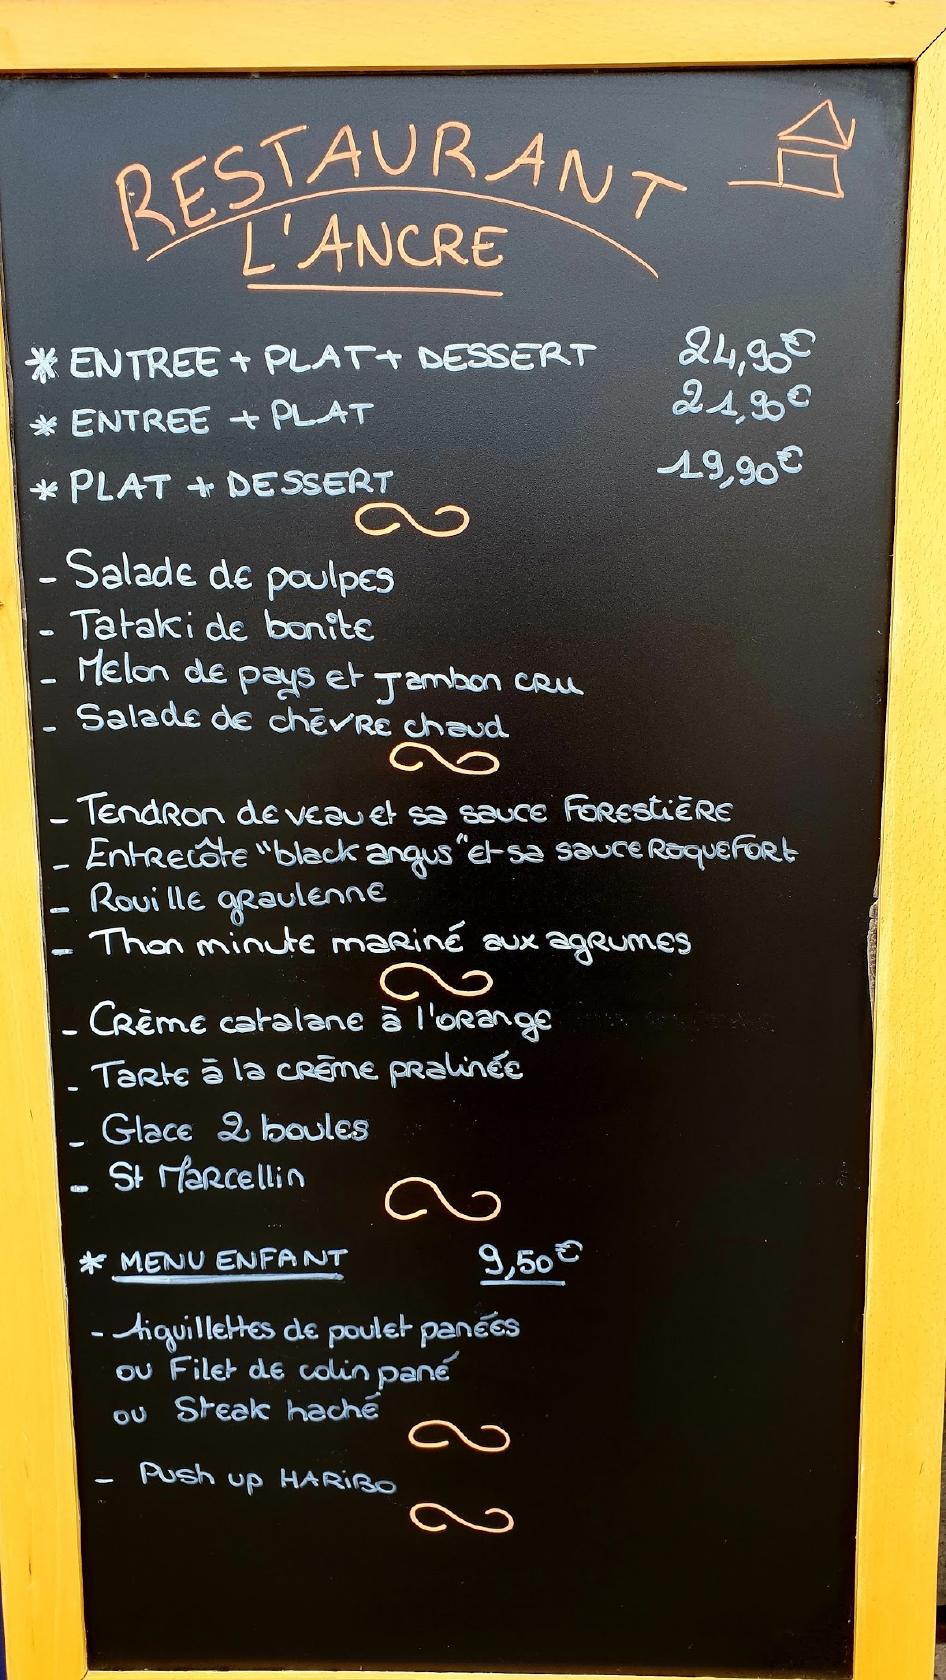 RESTAURANT
L'ANCRE
* ENTREE + PLAT + DESSERT 24,90€
* ENTREE + PLAT 21,90€
* PLAT + DESSERT 19,90€
- Salade de poulpes
- Tataki de bonite
- Melon de pays et Jambon cru
- Salade de chèvre chaud
- Tendron de veau et sa sauce Forestière
- Entrecôte "black angus" et sa sauce Roquefort
- Rouille graulenne
- Thon minute mariné aux agrumes
- Crème catalane à l'orange
- Tarte à la crème pralinée
- Glace 2 boules
- St Marcellin
* MENU ENFANT 9,50€
- Aiguillettes de poulet panées
ou Filet de colin pané
ou Steak haché
- Push up HARIBO